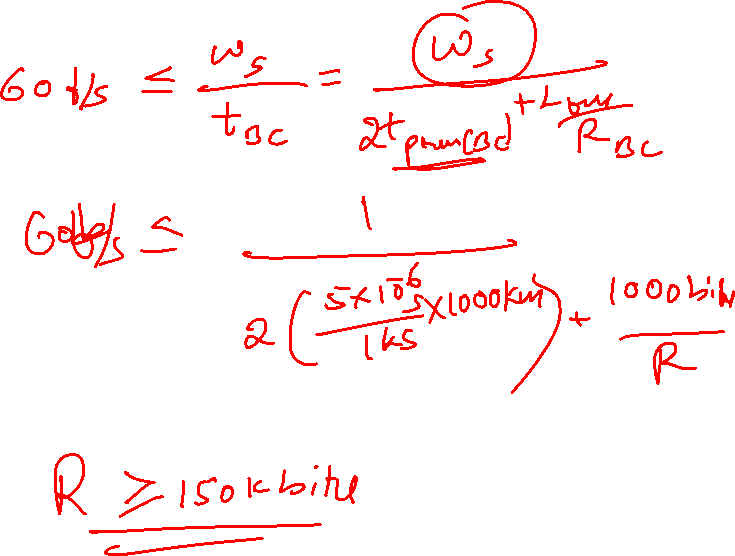 60 f/s ≤ w_s / t_BC = w_s / (2t_prop(BC) + L / R_BC)
60 f/s ≤ 1 / (2 (5×10^-6 s / 1 km × 1000km) + 1000 bits / R)
R ≥ 150 k bits